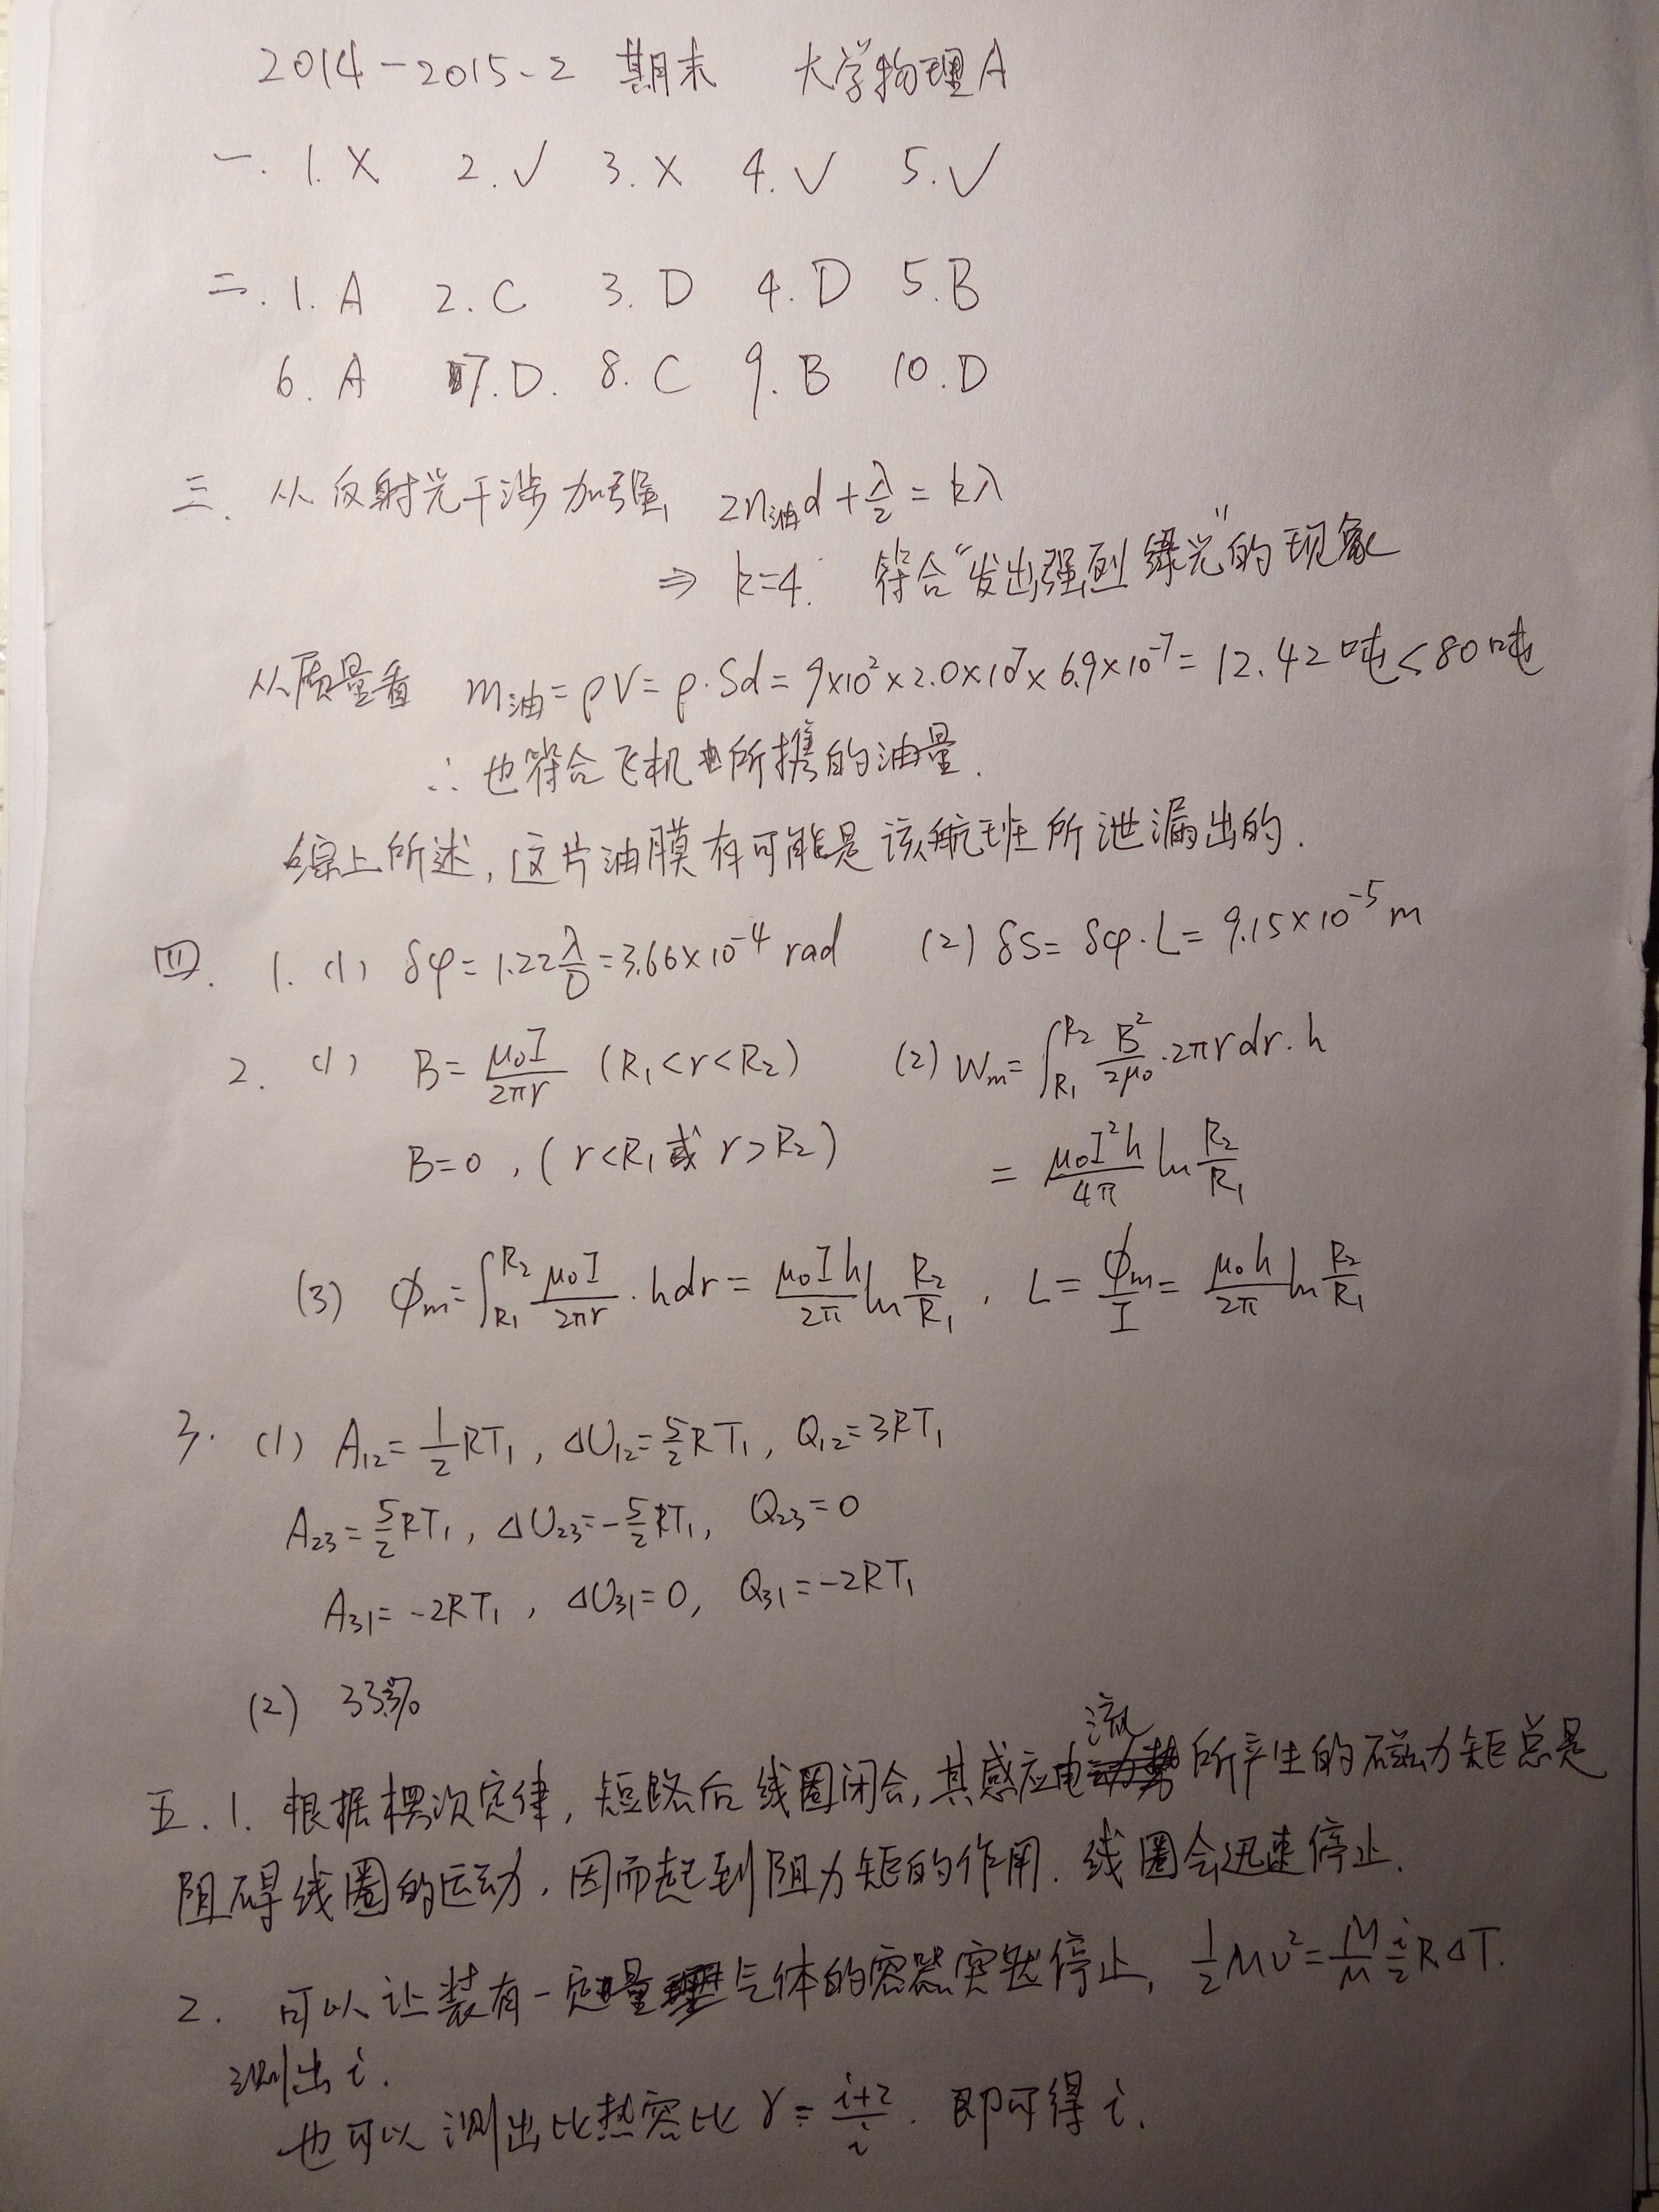 2014-2015-2 期末 大学物理A
一. 1. × 2. √ 3. × 4. √ 5. √
二. 1. A 2. C 3. D 4. D 5. B
6. A 7. D. 8. C 9. B 10. D
三. 从反射光干涉加强, 2n油d + λ/2 = kλ
⇒ k=4. 符合“发出强烈绿光”的现象
从质量看 m油 = ρV = ρ·Sd = 9×10² × 2.0×10⁷ × 6.9×10⁻⁷ = 12.42吨 < 80吨
∴ 也符合飞机所携的油量.
综上所述, 这片油膜有可能是该航班所泄漏出的.
四. 1. (1) δφ = 1.22 λ/D = 3.66×10⁻⁴ rad (2) δS = δφ·L = 9.15×10⁻⁵ m
2. (1) B = μ₀I/2πr (R₁<r<R₂) (2) Wm = ∫_{R₁}^{R₂} B²/2μ₀ ·2πr dr·h
B=0, (r<R₁ 或 r>R₂) = μ₀I²h/4π ln R₂/R₁
(3) φm = ∫_{R₁}^{R₂} μ₀I/2πr · hdr = μ₀Ih/2π ln R₂/R₁ , L = φm/I = μ₀h/2π ln R₂/R₁
3. (1) A₁₂ = 1/2 RT₁, ΔU₁₂ = 5/2 RT₁, Q₁₂ = 3RT₁
A₂₃ = 5/2 RT₁, ΔU₂₃ = -5/2 RT₁, Q₂₃ = 0
A₃₁ = -2RT₁, ΔU₃₁ = 0, Q₃₁ = -2RT₁
(2) 33.3%
五. 1. 根据楞次定律, 短路后线圈闭合, 其感应电流所产生的磁力矩总是
阻碍线圈的运动, 因而起到阻力矩的作用. 线圈会迅速停止.
2. 可以让装有一定量气体的容器突然停止, 1/2 Mv² = M/μ i/2 RΔT.
测出 i.
也可以测出比热容比 γ = i+2/i. 即可得 i.